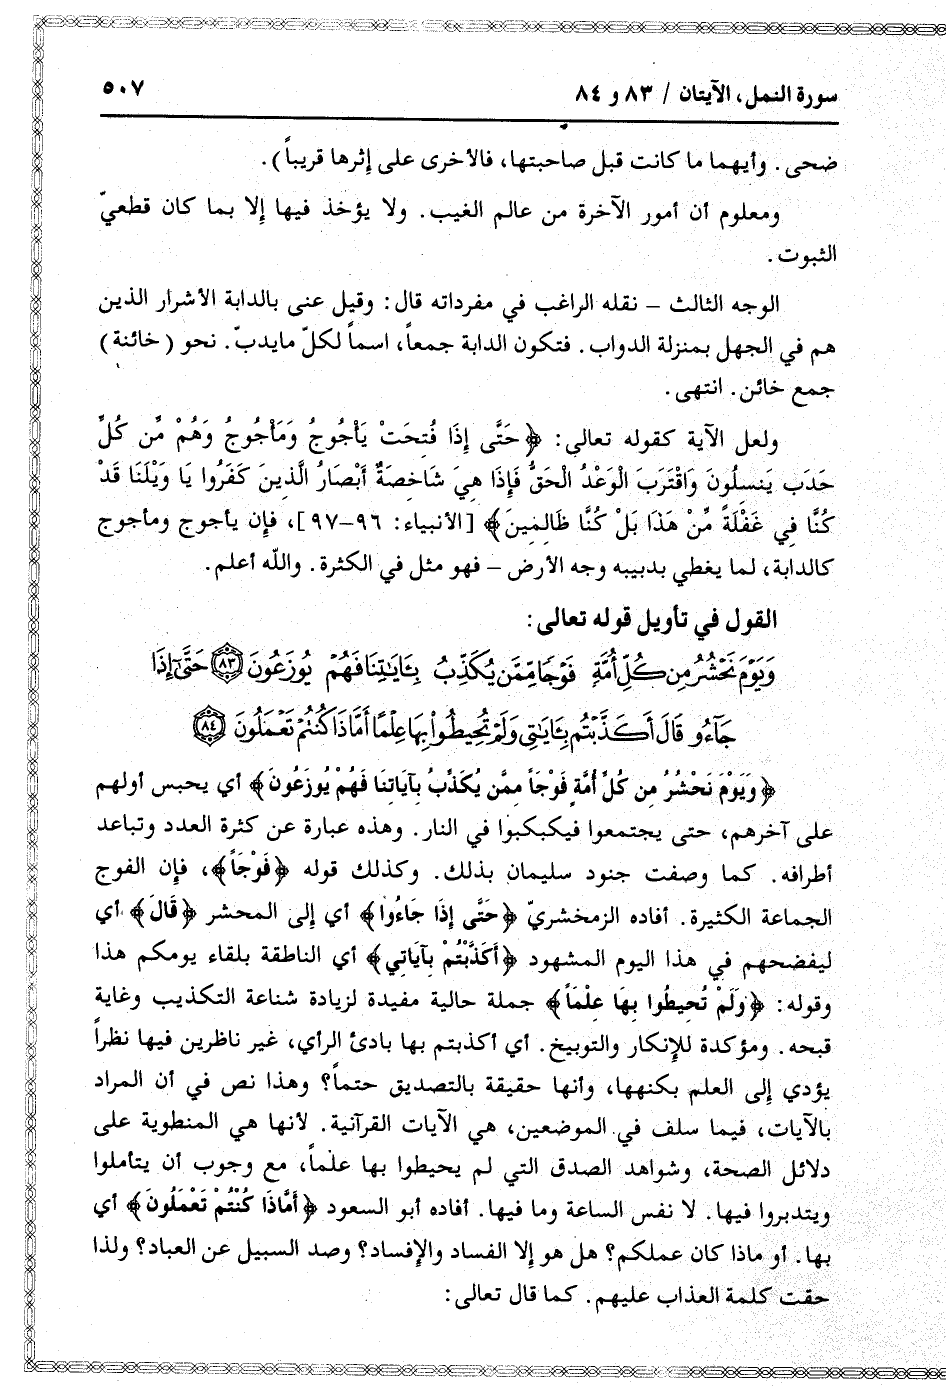 سورة النمل، الآيتان / ٨٣ و ٨٤
٥٠٧
ضحى. وأيهما ما كانت قبل صاحبتها، فالأخرى على إثرها قريباً).
ومعلوم أن أمور الآخرة من عالم الغيب. ولا يؤخذ فيها إلا بما كان قطعيّ
الثبوت.
الوجه الثالث – نقله الراغب في مفرداته قال: وقيل عنى بالدابة الأشرار الذين
هم في الجهل بمنزلة الدواب. فتكون الدابة جمعاً، اسماً لكلّ مايدبّ. نحو (خائنة)
جمع خائن. انتهى.
ولعل الآية كقوله تعالى: ﴿حَتَّى إِذَا فُتِحَتْ يَأْجُوجُ وَمَأْجُوجُ وَهُمْ مِّن كُلِّ
حَدَبٍ يَنسِلُونَ وَاقْتَرَبَ الْوَعْدُ الْحَقُّ فَإِذَا هِيَ شَاخِصَةٌ أَبْصَارُ الَّذِينَ كَفَرُوا يَا وَيْلَنَا قَدْ
كُنَّا فِي غَفْلَةٍ مِّنْ هَذَا بَلْ كُنَّا ظَالِمِينَ﴾ [الأنبياء: ٩٦–٩٧]، فإن يأجوج ومأجوج
كالدابة، لما يغطي بدبيبه وجه الأرض – فهو مثل في الكثرة. والله أعلم.
القول في تأويل قوله تعالى:
وَيَوْمَ نَحْشُرُ مِن كُلِّ أُمَّةٍ فَوْجًا مِّمَّن يُكَذِّبُ بِـَٔايَـٰتِنَا فَهُمْ يُوزَعُونَ ﴿٨٣﴾ حَتَّىٰٓ إِذَا
جَآءُو قَالَ أَكَذَّبْتُم بِـَٔايَـٰتِى وَلَمْ تُحِيطُوا۟ بِهَا عِلْمًا أَمَّاذَا كُنتُمْ تَعْمَلُونَ ﴿٨٤﴾
﴿وَيَوْمَ نَحْشُرُ مِن كُلِّ أُمَّةٍ فَوْجَاً مِمَّن يُكَذِّبُ بِآيَاتِنَا فَهُمْ يُوزَعُونَ﴾ أي يحبس أولهم
على آخرهم، حتى يجتمعوا فيكبكبوا في النار. وهذه عبارة عن كثرة العدد وتباعد
أطرافه. كما وصفت جنود سليمان بذلك. وكذلك قوله ﴿فَوْجَاً﴾، فإن الفوج
الجماعة الكثيرة. أفاده الزمخشريّ ﴿حَتَّى إِذَا جَاءُوا﴾ أي إلى المحشر ﴿قَالَ﴾ أي
ليفضحهم في هذا اليوم المشهود ﴿أَكَذَّبْتُمْ بِآيَاتِي﴾ أي الناطقة بلقاء يومكم هذا
وقوله: ﴿وَلَمْ تُحِيطُوا بِهَا عِلْمَاً﴾ جملة حالية مفيدة لزيادة شناعة التكذيب وغاية
قبحه. ومؤكدة للإنكار والتوبيخ. أي أكذبتم بها بادئ الرأي، غير ناظرين فيها نظراً
يؤدي إلى العلم بكنهها، وأنها حقيقة بالتصديق حتماً؟ وهذا نص في أن المراد
بالآيات، فيما سلف في الموضعين، هي الآيات القرآنية. لأنها هي المنطوية على
دلائل الصحة، وشواهد الصدق التي لم يحيطوا بها علماً، مع وجوب أن يتأملوا
ويتدبروا فيها. لا نفس الساعة وما فيها. أفاده أبو السعود ﴿أَمَّاذَا كُنْتُمْ تَعْمَلُونَ﴾ أي
بها. أو ماذا كان عملكم؟ هل هو إلا الفساد والإفساد؟ وصد السبيل عن العباد؟ ولذا
حقت كلمة العذاب عليهم. كما قال تعالى: